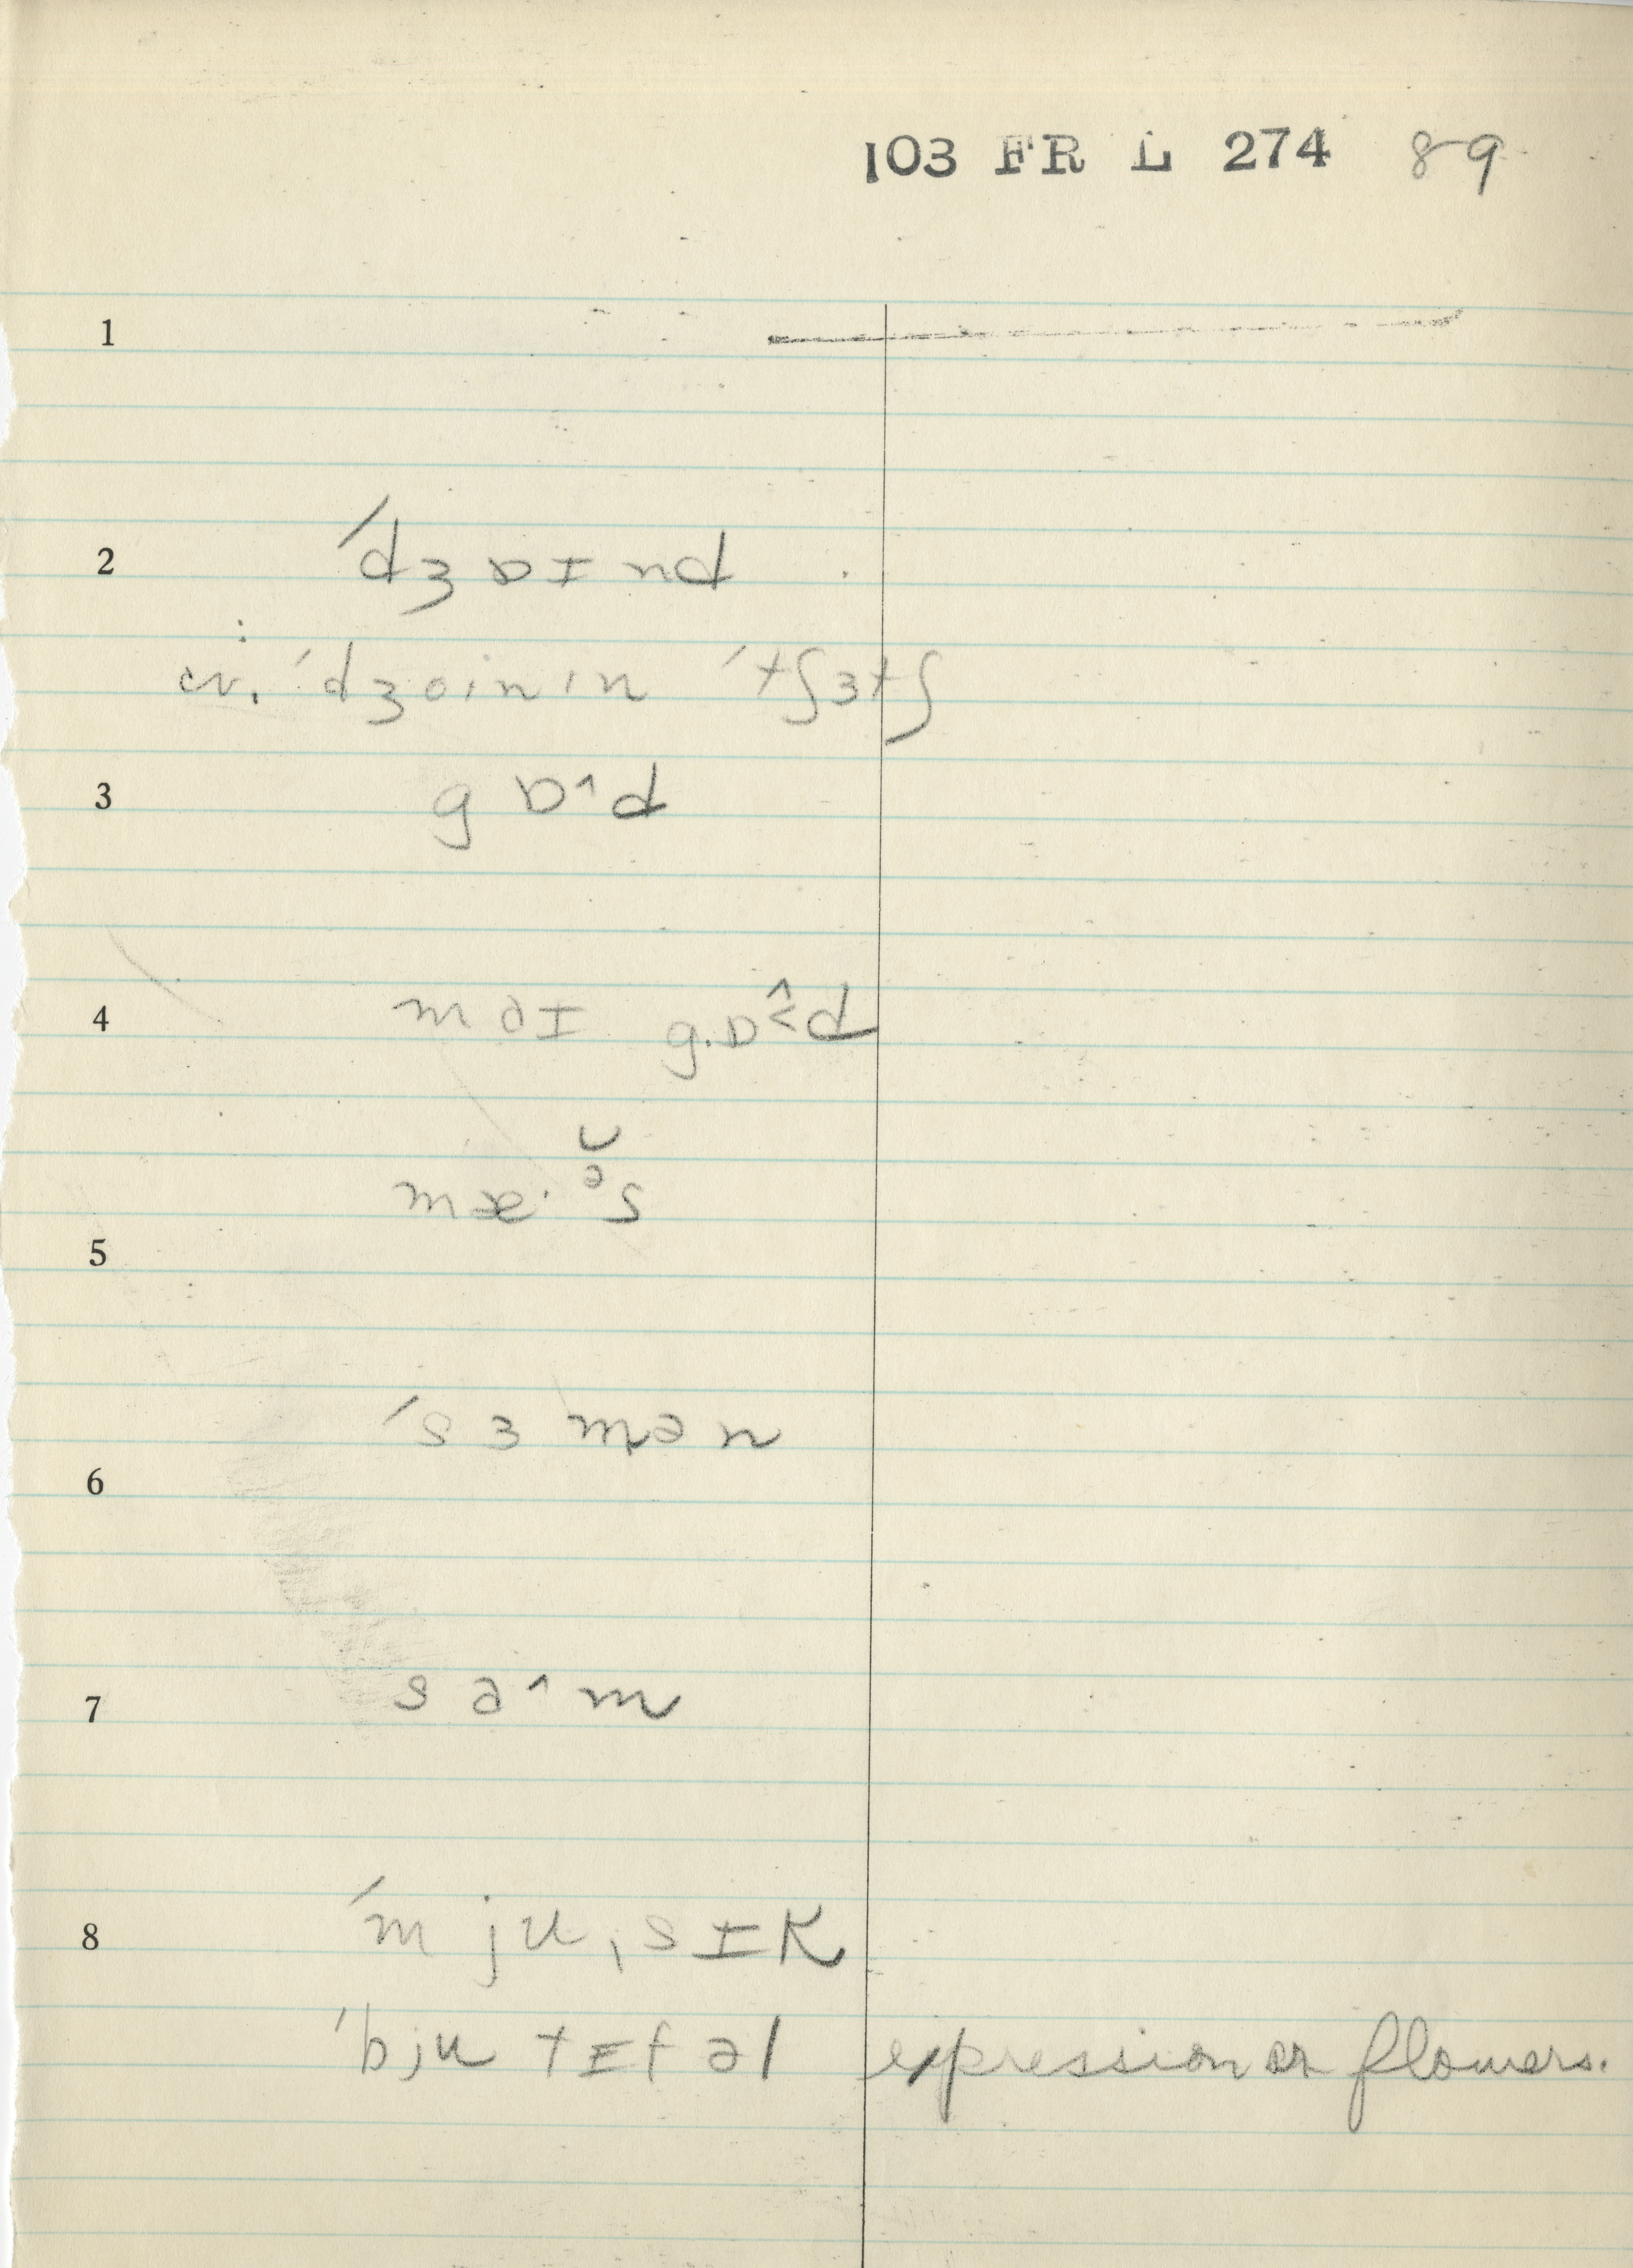 103 FR L 274 89
1
2 ˈdʒɒɪnd
cv. ˈdʒoɪnɪn ˈtʃɜtʃ
3 gɒ^d
4 mɑɪ gɒ^<d
mæ·ə̆s
5
ˈsɜmən
6
7 sɑ^m
8 ˈmjuˌsɪk
ˈbjutɪfəl expression or flowers.